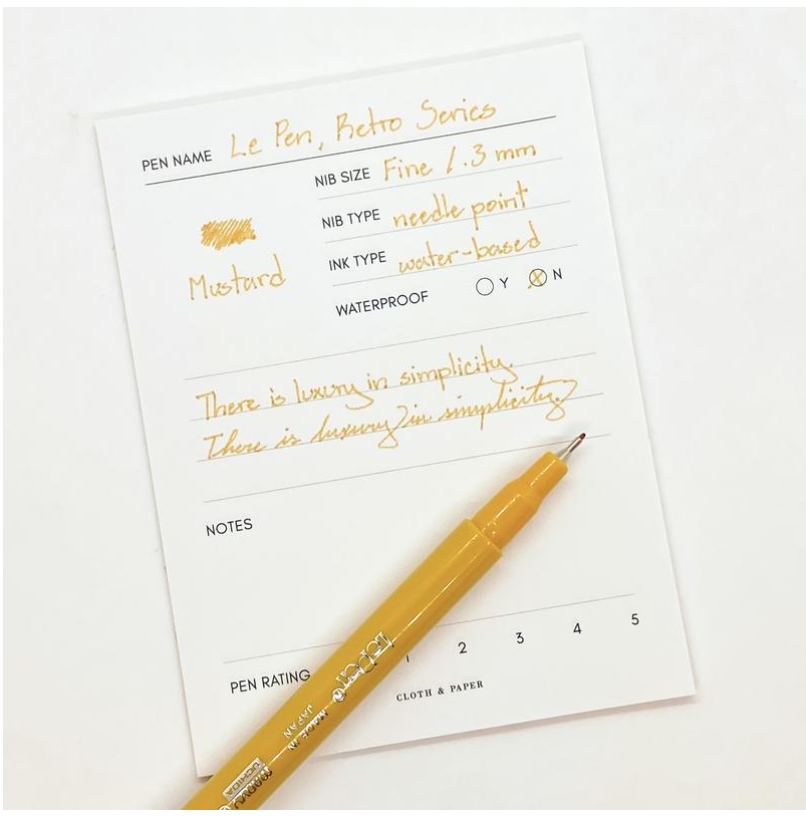 PEN NAME Le Pen, Retro Series
NIB SIZE Fine / .3 mm
NIB TYPE needle point
INK TYPE water-based
Mustard
WATERPROOF Y N
There is luxury in simplicity.
There is luxury in simplicity.
NOTES
PEN RATING 1 2 3 4 5
CLOTH & PAPER
LePen
MADE IN
JAPAN
MARVY
UCHIDA